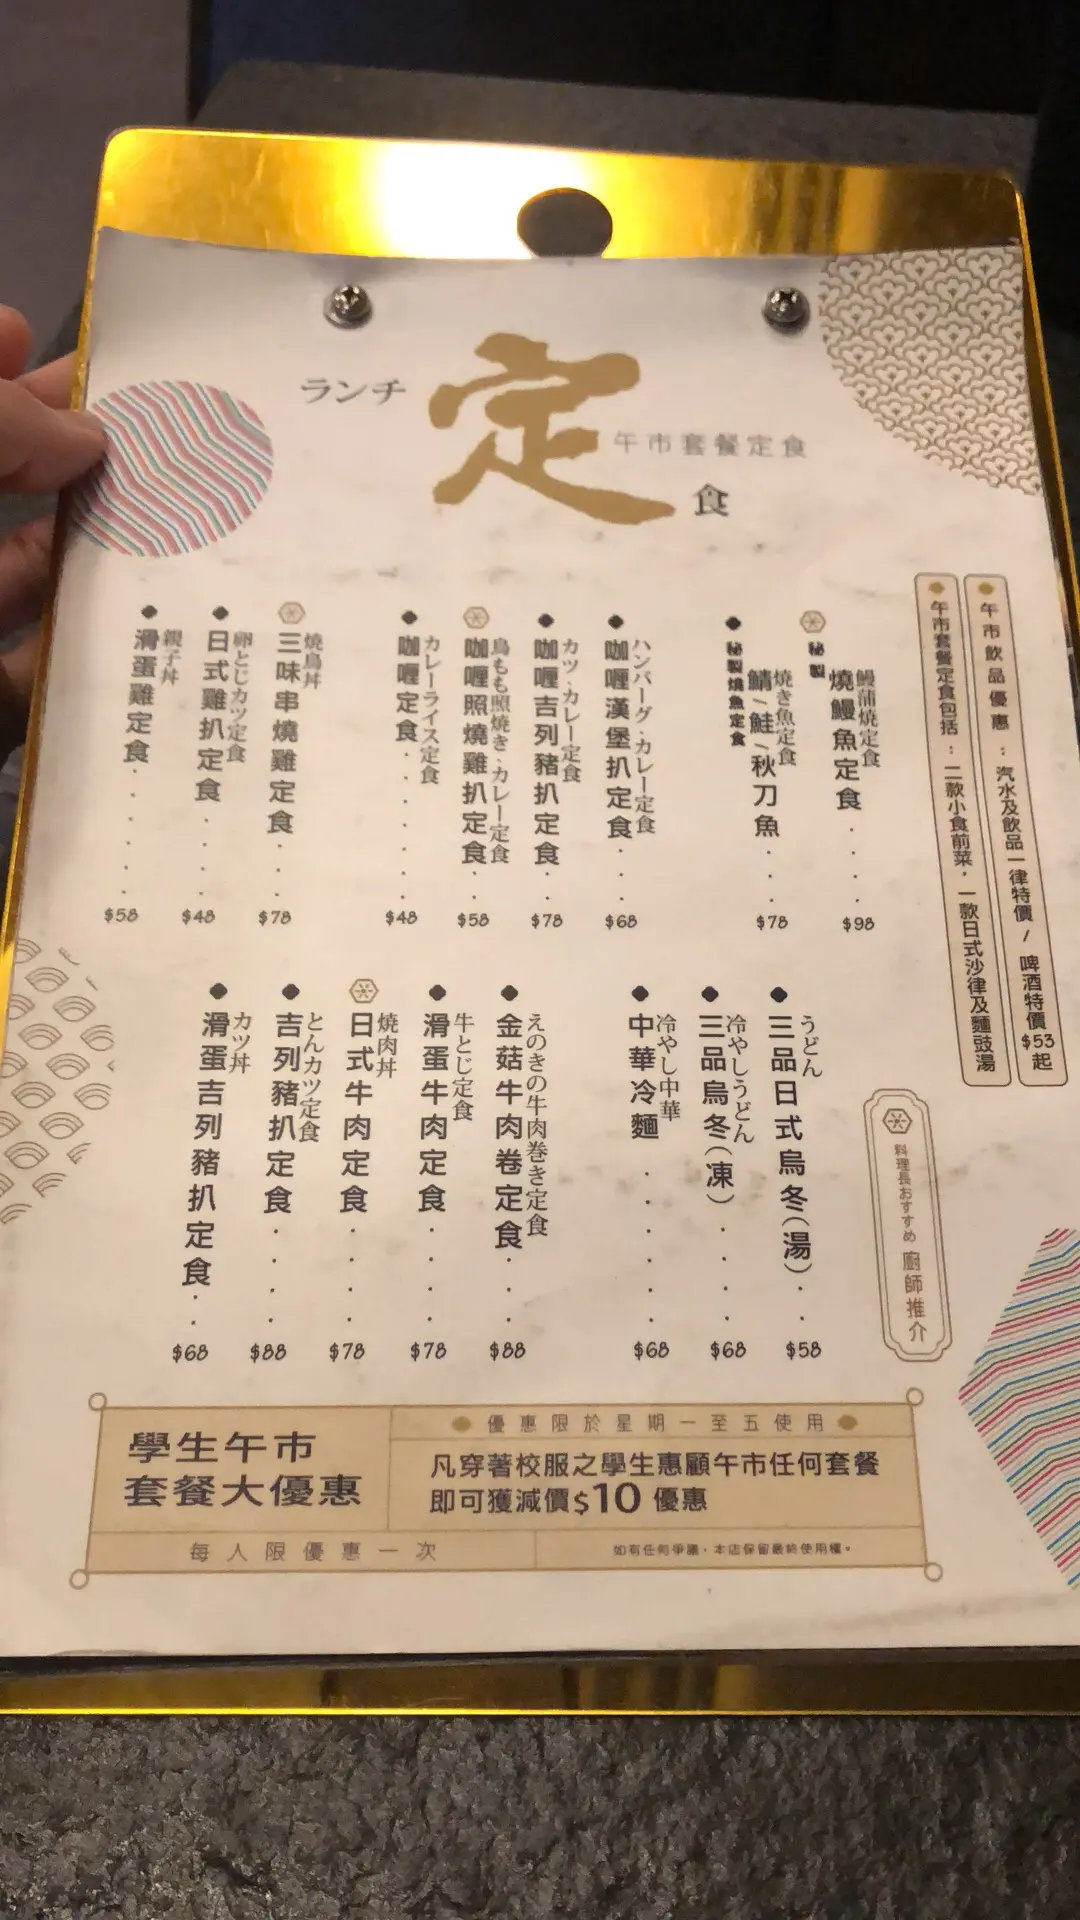 ランチ
定
午市套餐定食
食
午市飲品優惠：汽水及飲品一律特價 / 啤酒特價$53起
午市套餐定食包括：二款小食前菜，一款日式沙律及麵豉湯
鰻蒲焼定食
秘製燒鰻魚定食 $98
焼き魚定食
秘製燒魚定食
鯖\鮭\秋刀魚 $78
ハンバーグ・カレー定食
咖喱漢堡扒定食 $68
カツ・カレー定食
咖喱吉列豬扒定食 $78
鳥もも照焼き・カレー定食
咖喱照燒雞扒定食 $58
カレーライス定食
咖喱定食 $48
焼鳥丼
三味串燒雞定食 $78
卵とじカツ定食
日式雞扒定食 $48
親子丼
滑蛋雞定食 $58
うどん
三品日式烏冬(湯) $58
冷やしうどん
三品烏冬(凍) $68
冷やし中華
中華冷麵 $68
えのきの牛肉巻き定食
金菇牛肉卷定食 $88
牛とじ定食
滑蛋牛肉定食 $78
焼肉丼
日式牛肉定食 $78
とんカツ定食
吉列豬扒定食 $88
カツ丼
滑蛋吉列豬扒定食 $68
料理長おすすめ 廚師推介
學生午市
套餐大優惠
優惠限於星期一至五使用
凡穿著校服之學生惠顧午市任何套餐
即可獲減價$10 優惠
每人限優惠一次
如有任何爭議，本店保留最終使用權。